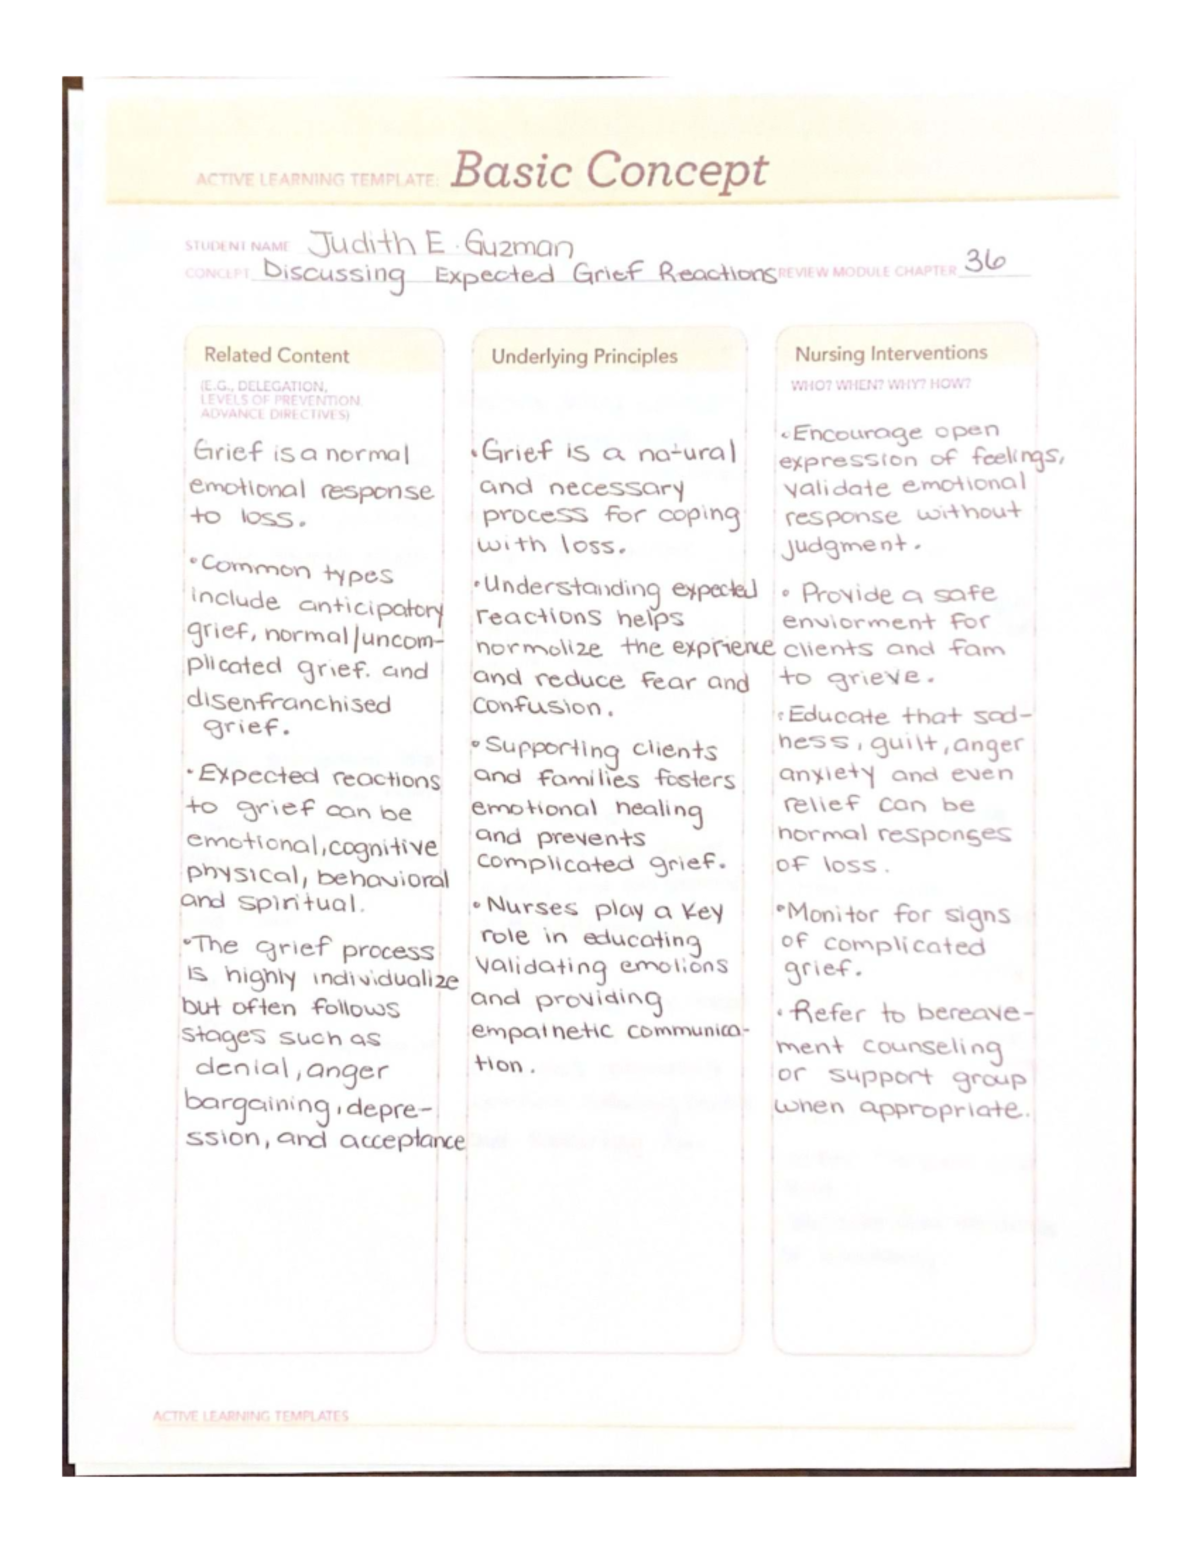 ACTIVE LEARNING TEMPLATE: Basic Concept
STUDENT NAME Judith E. Guzman
CONCEPT Discussing Expected Grief Reactions REVIEW MODULE CHAPTER 36
Related Content
(E.G., DELEGATION,
LEVELS OF PREVENTION,
ADVANCE DIRECTIVES)
Grief is a normal
emotional response
to loss.
•Common types
include anticipatory
grief, normal/uncom-
plicated grief. and
disenfranchised
grief.
•Expected reactions
to grief can be
emotional, cognitive
physical, behavioral
and spiritual.
•The grief process
is highly individualize
but often follows
stages such as
denial, anger
bargaining, depre-
ssion, and acceptance
Underlying Principles
•Grief is a natural
and necessary
process for coping
with loss.
•Understanding expected
reactions helps
normolize the exprience
and reduce fear and
confusion.
•Supporting clients
and families fosters
emotional healing
and prevents
complicated grief.
•Nurses play a key
role in educating
validating emotions
and providing
empathetic communica-
tion.
Nursing Interventions
WHO? WHEN? WHY? HOW?
•Encourage open
expression of feelings,
validate emotional
response without
judgment.
• Provide a safe
enviorment for
clients and fam
to grieve.
•Educate that sad-
ness, guilt, anger
anxiety and even
relief can be
normal responses
of loss.
•Monitor for signs
of complicated
grief.
•Refer to bereave-
ment counseling
or support group
when appropriate.
ACTIVE LEARNING TEMPLATES